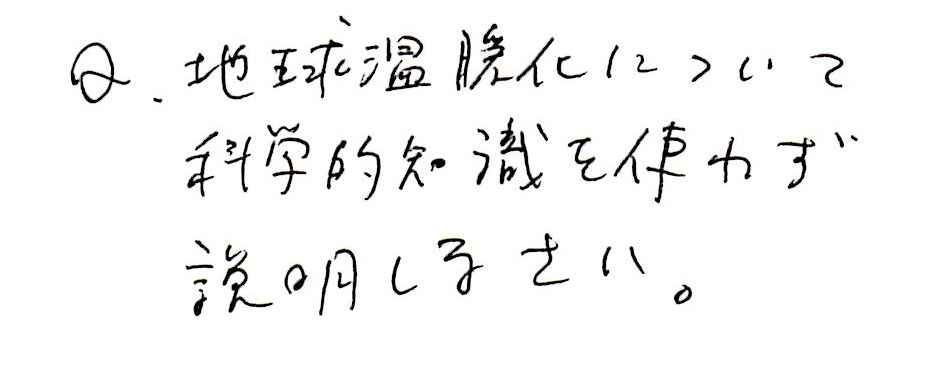 Q. 地球温暖化について
科学的知識を使わず
説明しなさい。